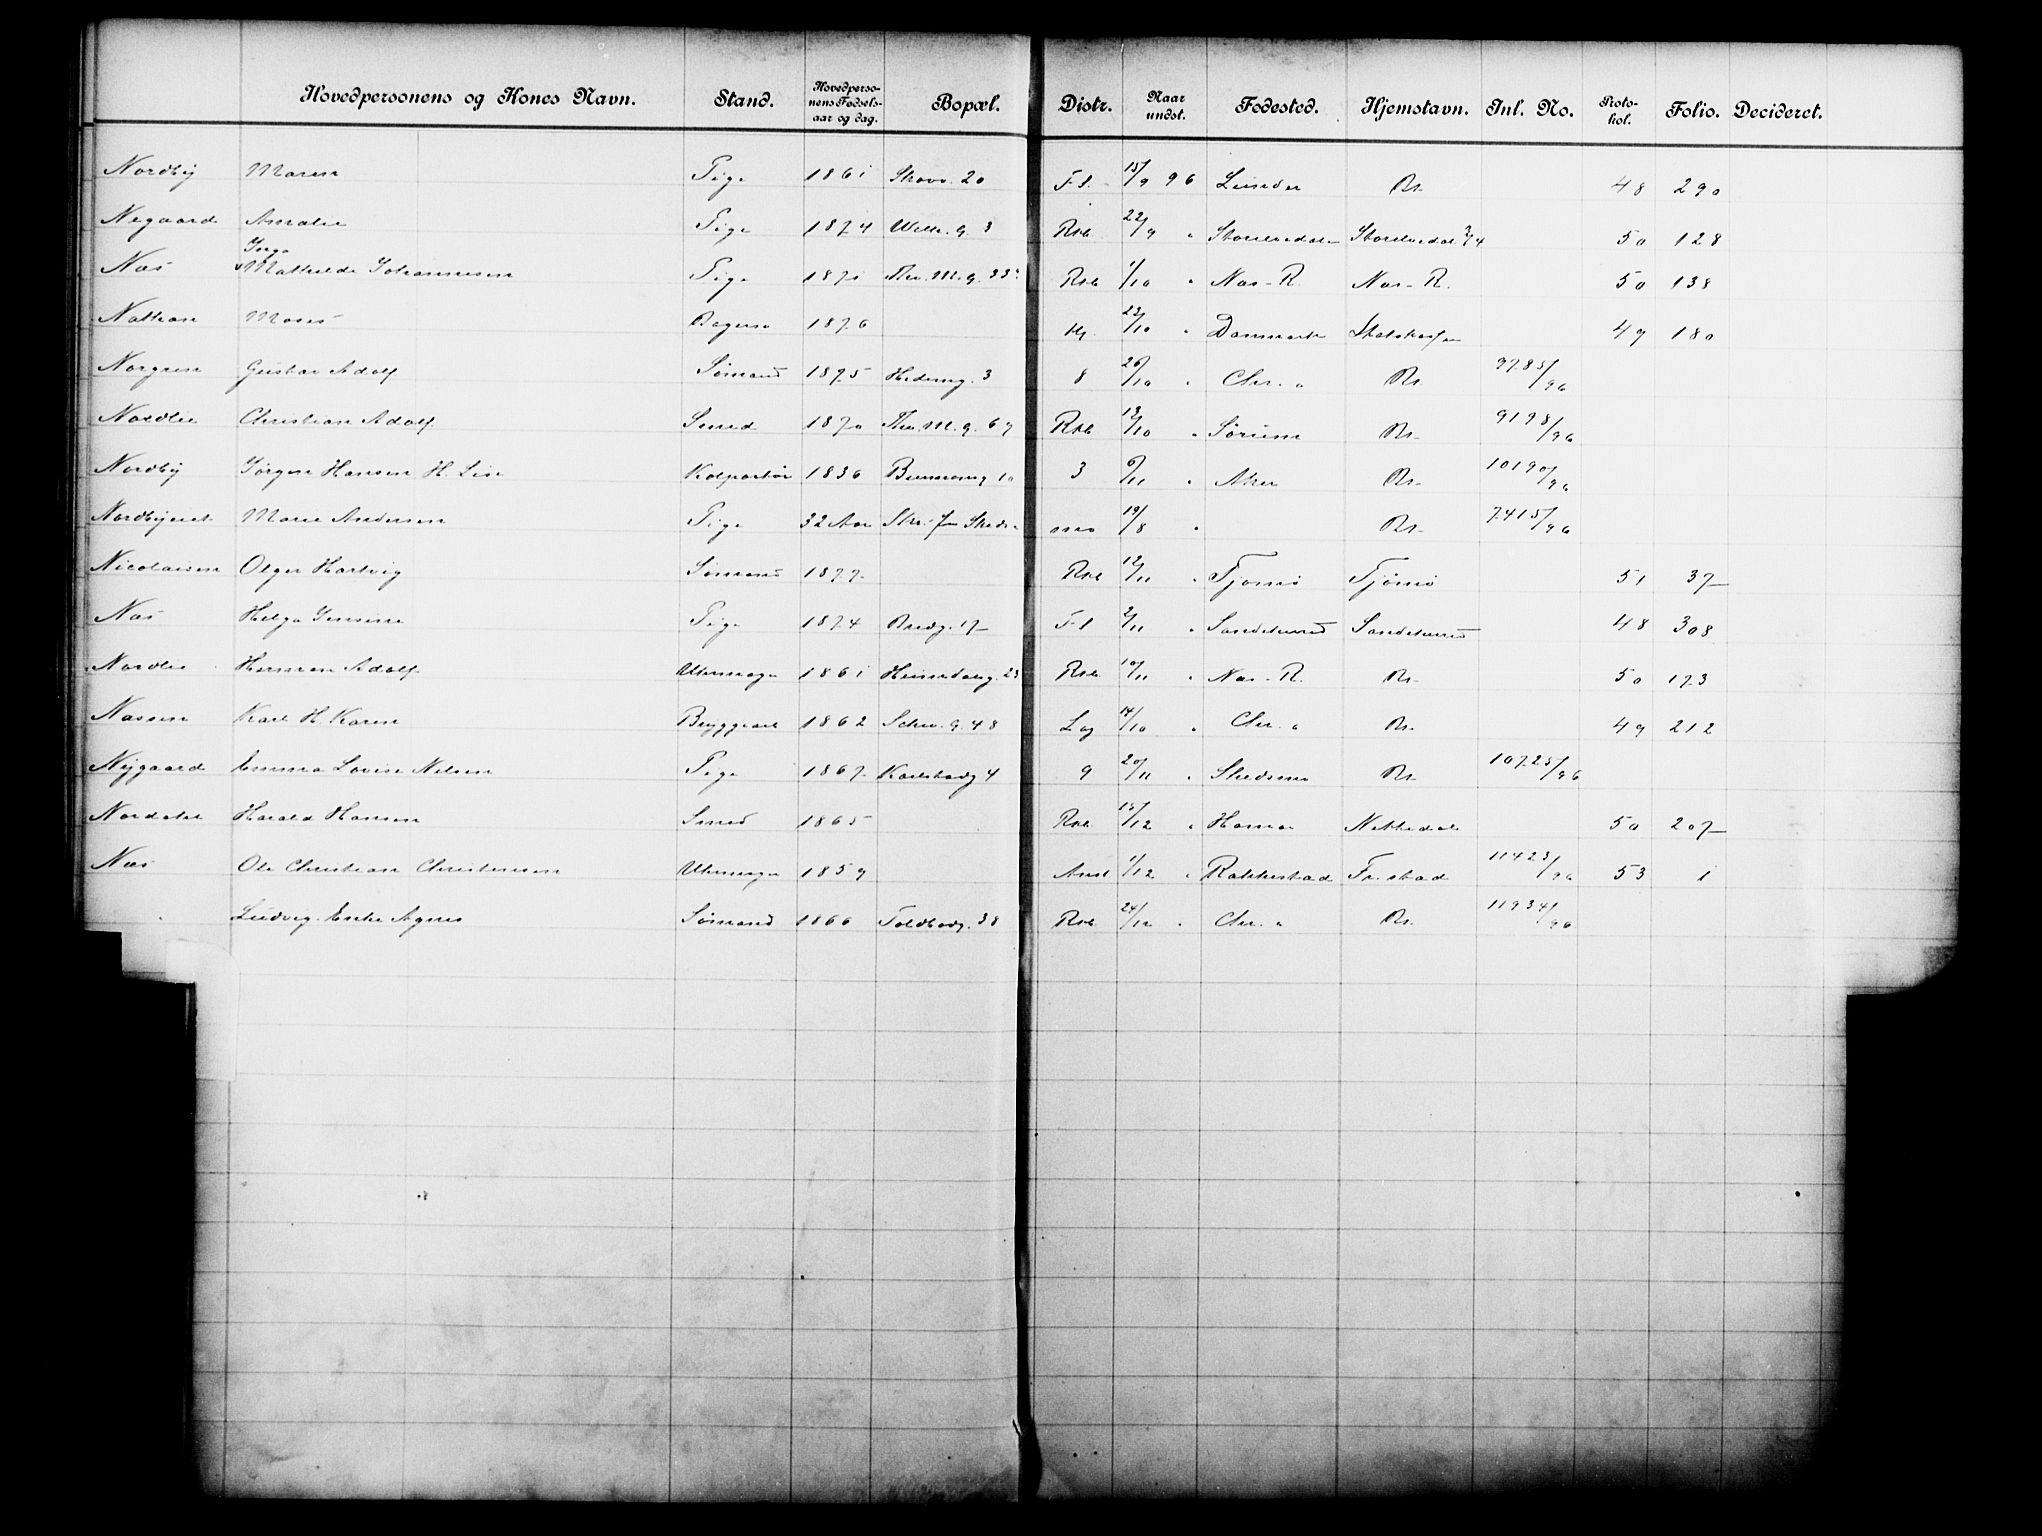 Hovedpersonens og Kones Navn. Stand. Hovedpersonens Fødselsaar og dag. Bopæl. Distr. Naar undst. Fødested. Hjemstavn. Inl. No. Protokol. Folio. Decideret.
Nordby Maren Pige 1861 Skovv. 20 Fl. 15/9 96 Lunder Bs. 48 290
Negaard Amalie Pige 1874 Welh. g. 3 Rsk 22/9 " Storelvedalen Storelvedal 50 128
Næs Inga Mathilde Johannesen Pige 1871 Thv. M. g. 33 Rsk 1/10 " Næs - R. Næs - R. 50 138
Nathan Moses 1876 23/10 " Danmark 49 180
Norgren Gustav Adolf Sømand 1875 Hedemg. 3 8 26/10 " Chr. a Bs. 9785/96
Nordlie Christian Adolf Smed 1870 Thv. M. g. 67 Rsk 13/10 " Sørum Bs. 9198/96
Nordby Jørgen Hansen H. Lise Kolportør 1836 10 3 6/11 " Aker Bs. 10190/96
Marie Andersen Pige 32 Aar 19/8 " Bs. 7415/96
Nicolaisen Olger Hartvig Sømand 1877 Rsk 12/11 " Tjømø Tjømø 51 37
Næs Helga Jensine Pige 1874 Bredg. 17 Fl 2/11 " Sandeherred Sandeherred 48 308
Nordlie Herman Adolf Uhrmager 1861 Heimdalsg. 23 Rsk 10/11 " Næs - R. Bs. 50 173
Næssen Karl H. Karen Bryggearb 1862 Schw. g. 48 Log 14/10 " Chr. a Bs. 49 212
Nygaard Emma Lovise Nilsen Pige 1867 Karlstadg 4 9 20/11 " Skedsmo Bs. 10725/96
Nordahl Harald Hansen Smed 1865 Rsk 15/12 " Hamar Nittedal 50 207
Næs Ole Christian Christensen Uhrmager 1859 1/12 " Rakkestad Fr. stad 11423/96 53 1
" Ludvig. Enke Agnes Sømand 1866 Toldbodg. 38 Rsk 24/12 " Chr. a Bs. 11934/96